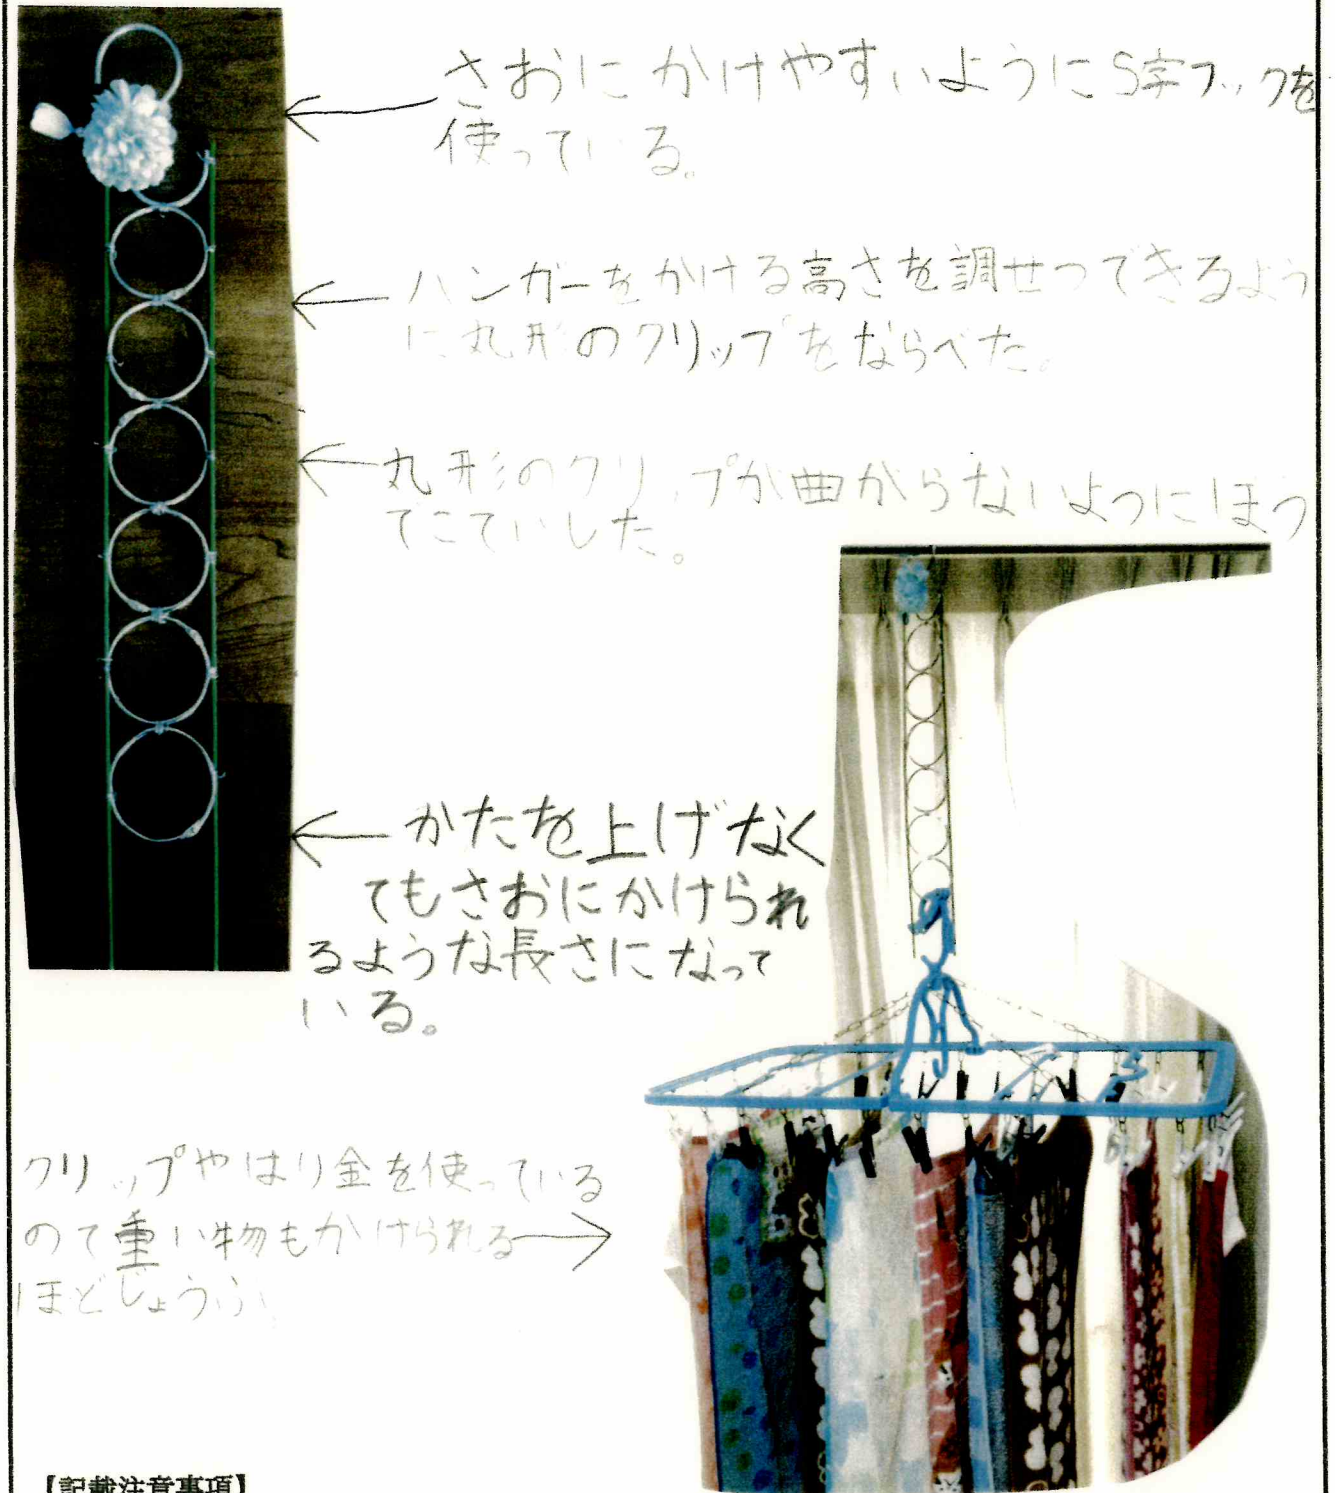 さおにかけやすいようにS字フックを
使っている。
ハンガーをかける高さを調せつできるよう
に丸形のクリップをならべた。
丸形のクリップが曲がらないようにぼう
でこていした。
かたを上げなく
てもさおにかけられ
るような長さになって
いる。
クリップやはり金を使っている
ので重い物もかけられる
ほどじょうぶ
【記載注意事項】